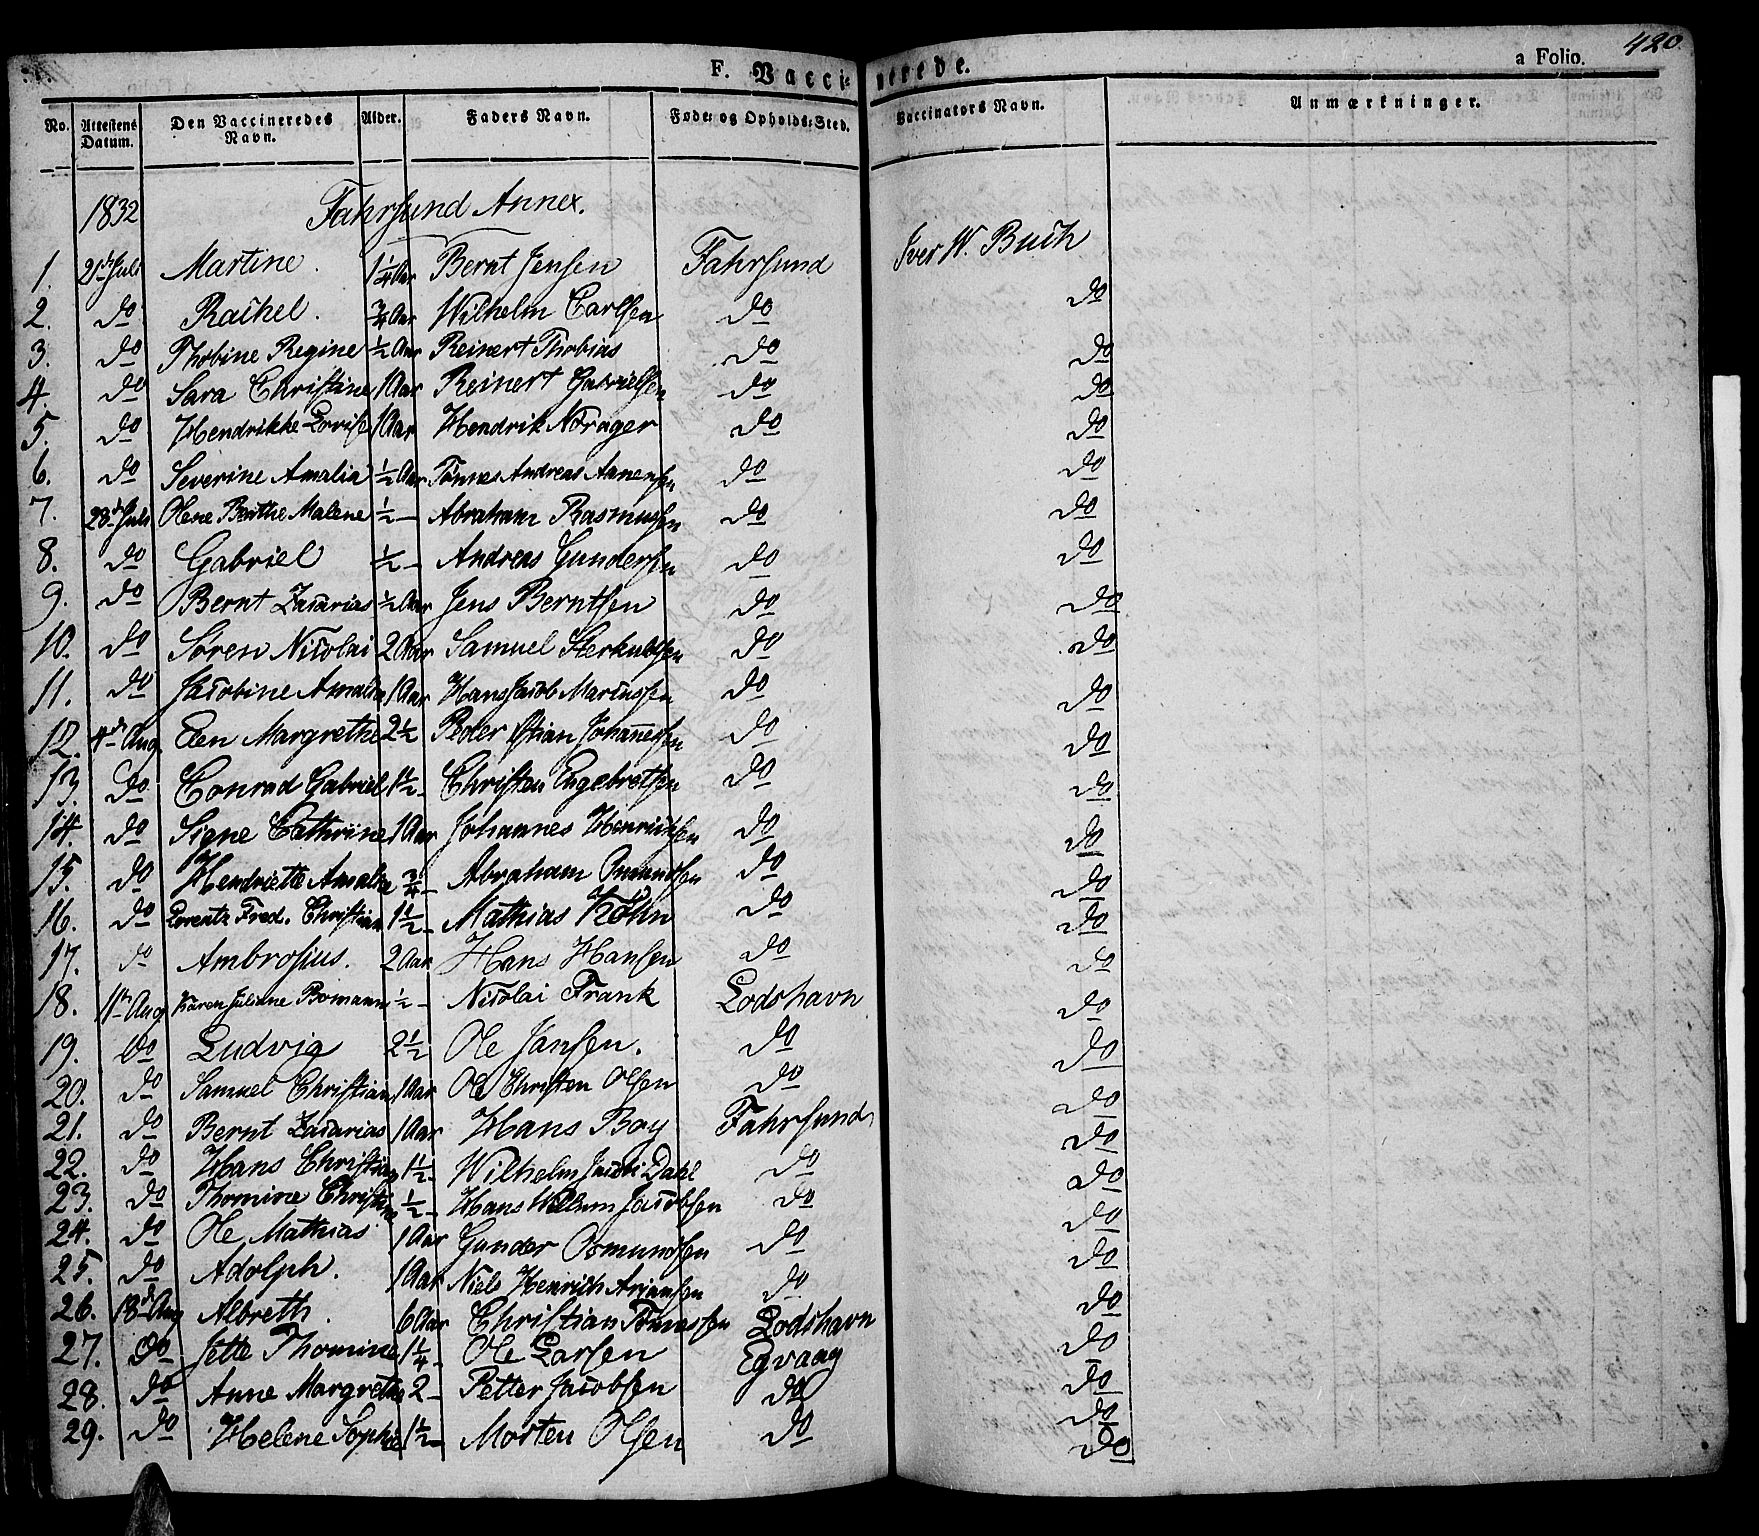 F. Vaccinerede.
a Folio. 420.
No. Attestens Datum. Den Vaccineredes Navn. Alder. Faders Navn. Føde- og Opholds-Sted. Vaccinators Navn. Anmærkninger.
1832 Fahrsund Annex.
1. 21de Juli Martine. 1 1/4 Aar Bernt Jensen Fahrsund Iver W. Buch
2. do Rachel. 3/4 Aar Wilhelm Carlsen do do
3. do Thobine Regine 1/2 Aar Reinert Thobias do do
4. do Sara Christine 1 Aar Reinert Gabrielsen do do
5. do Hendrikke Lovise 1 Aar Hendrik Nörager do do
6. do Severine Amalia 1/2 Aar Tønnes Andreas Aanensen do do
7. 28de Juli Olene Berthe Malene 1/2 — Abraham Rasmussen do do
8. do Gabriel 1/2 — Andreas Gundersen do do
9. do Bernt Zacarias 1/2 Aar Jens Berntsen do do
10. do Søren Nicolai 2 Aar Samuel do do
11. do Jacobine Amalia 1 Aar Hans Jacob Marcussen do do
12. 4de Aug Elen Margrethe 2 1/2 Peder Johannessen do do
13. do Conrad Gabriel 1 1/2 — Christen Engebretsen do do
14. do Signe Cathrine 1 Aar Johannes Henriksen do do
15. do Hendriette Amalia 3/4 — Abraham Osmundsen do do
16. do Lorentz Fred. Christian 1 1/2 — Mathias Köhn do do
17. do Ambrosius. 2 Aar Hans Hansen do do
18. 11te Aug Karen Juliane Bomann 1/2 — Nicolai Frank Lodshavn do
19. Do Ludvig 2 1/2 Ole Jansen. do do
20. do Samuel Christian 1 Aar Ole Christen Olsen do do
21. do Bernt Zacarias 1 Aar Hans Boy Fahrsund do
22. do Hans Christian 1 1/2 — Wilhelm Jacob Dahl do do
23. do Thomine 1/2 — Hans Jacobsen do do
24. do Ole Mathias 1 Aar Gunder Osmundsen do do
25. do Adolph. 1 Aar Niels Henrich do do
26. 18de Aug Albreth. 6 Aar Christian Tønnessen Lodshavn do
27. Do Jette Thomine 1 1/4 — Ole Larsen Egvaag do
28. do Anne Margrethe 2 — Petter Jacobsen do do
29. do Helene Sophie 1 1/2 — Morten Olsen do do
do